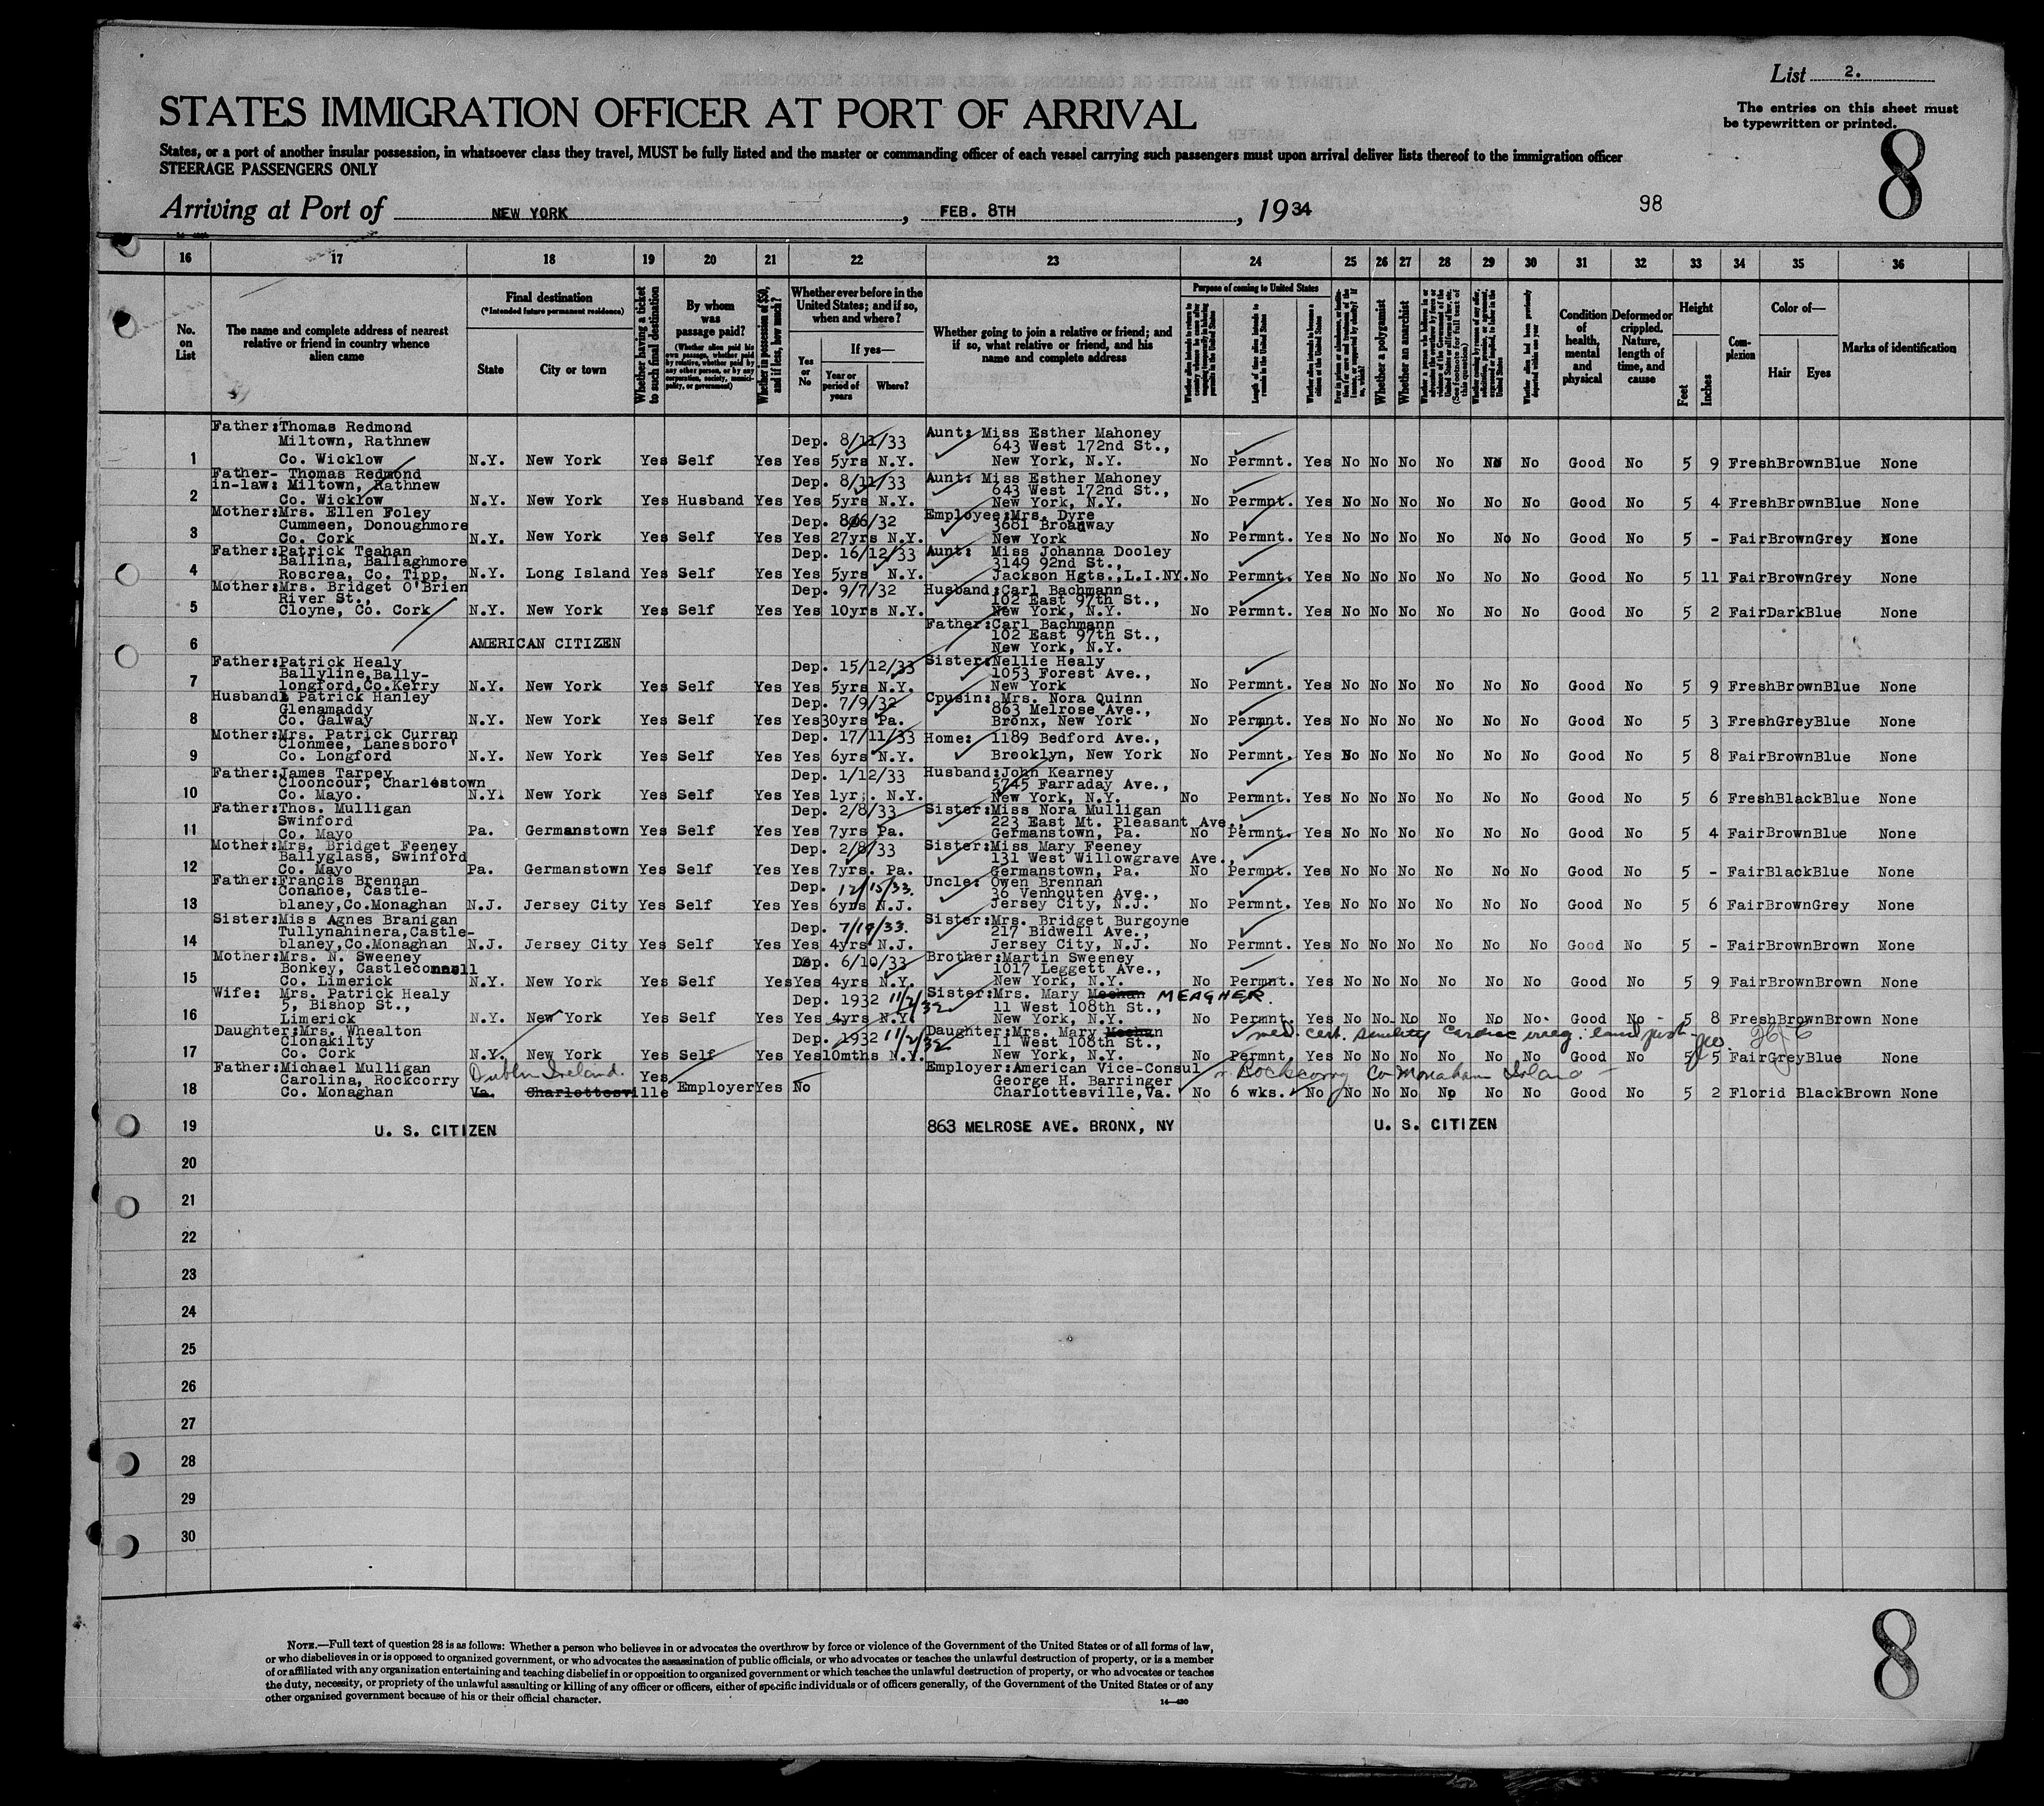 List 2.
The entries on this sheet must
be typewritten or printed.
8
STATES IMMIGRATION OFFICER AT PORT OF ARRIVAL
States, or a port of another insular possession, in whatsoever class they travel, MUST be fully listed and the master or commanding officer of each vessel carrying such passengers must upon arrival deliver lists thereof to the immigration officer
STEERAGE PASSENGERS ONLY
Arriving at Port of NEW YORK, FEB. 8TH, 1934
98
16 17 18 19 20 21 22 23 24 25 26 27 28 29 30 31 32 33 34 35 36
No. on List
The name and complete address of nearest relative or friend in country whence alien came
Final destination
(*Intended future permanent residence)
State
City or town
Whether having a ticket to such final destination
By whom was passage paid?
(Whether alien paid his own passage, whether paid by relative, whether paid by any other person, or by any corporation, society, municipality, or government)
Whether in possession of $50, and if less, how much?
Whether ever before in the United States; and if so, when and where?
Yes or No
If yes—
Year or period of years
Where?
Whether going to join a relative or friend; and if so, what relative or friend, and his name and complete address
Purpose of coming to United States
Length of time alien intends to remain in the United States
Whether alien intends to become a citizen of the United States
Whether a polygamist
Whether an anarchist
Condition of health, mental and physical
Deformed or crippled. Nature, length of time, and cause
Height
Feet
Inches
Complexion
Color of—
Hair
Eyes
Marks of identification
Father:Thomas Redmond
Miltown, Rathnew Dep. 8/11/33 Aunt: Miss Esther Mahoney
643 West 172nd St.,
1 Co. Wicklow N.Y. New York Yes Self Yes Yes 5yrs N.Y. New York, N.Y. No Permnt. Yes No No No No No No Good No 5 9 Fresh Brown Blue None
Father- Thomas Redmond
in-law: Miltown, Rathnew Dep. 8/11/33 Aunt: Miss Esther Mahoney
643 West 172nd St.,
2 Co. Wicklow N.Y. New York Yes Husband Yes Yes 5yrs N.Y. New York, N.Y. No Permnt. Yes No No No No No No Good No 5 4 Fresh Brown Blue None
Mother:Mrs. Ellen Foley
Cummeen, Donoughmore Dep. 6/32 Employee:Mrs. Dyre
3681 Broadway
3 Co. Cork N.Y. New York Yes Self Yes Yes 27yrs N.Y. New York No Permnt. Yes No No No No No No Good No 5 - Fair Brown Grey None
Father:Patrick Teahan
Ballina, Ballaghmore Dep. 16/12/33 Aunt: Miss Johanna Dooley
3149 92nd St.,
4 Roscrea, Co. Tipp. N.Y. Long Island Yes Self Yes Yes 5yrs N.Y. Jackson Hgts.,L.I.NY. No Permnt. Yes No No No No No No Good No 5 11 Fair Brown Grey None
Mother:Mrs. Bridget O'Brien
River St., Dep. 9/7/32 Husband:Carl Bachmann
102 East 97th St.,
5 Cloyne, Co. Cork N.Y. New York Yes Self Yes Yes 10yrs N.Y. New York, N.Y. No Permnt. Yes No No No No No No Good No 5 2 Fair Dark Blue None
Father:Carl Bachmann
102 East 97th St.,
6 AMERICAN CITIZEN New York, N.Y.
Father:Patrick Healy
Ballyline,Bally- Dep. 15/12/33 Sister:Nellie Healy
1053 Forest Ave.,
7 longford,Co.Kerry N.Y. New York Yes Self Yes Yes 5yrs N.Y. New York No Permnt. Yes No No No No No No Good No 5 9 Fresh Brown Blue None
Husband: Patrick Hanley
Glenamaddy Dep. 7/9/32 Cpusin: Mrs. Nora Quinn
863 Melrose Ave.,
8 Co. Galway N.Y. New York Yes Self Yes Yes 30yrs Pa. Bronx, New York No Permnt. Yes No No No No No No Good No 5 3 Fresh Grey Blue None
Mother:Mrs. Patrick Curran
Clonmee, Lanesboro' Dep. 17/11/33 Home: 1189 Bedford Ave.,
9 Co. Longford N.Y. New York Yes Self Yes Yes 6yrs N.Y. Brooklyn, New York No Permnt. Yes No No No No No No Good No 5 8 Fair Brown Blue None
Father:James Tarpey
Clooncour, Charlestown Dep. 1/12/33 Husband:John Kearney
5745 Farraday Ave.,
10 Co. Mayo. N.Y. New York Yes Self Yes Yes 1yr. N.Y. New York, N.Y. No Permnt. Yes No No No No No No Good No 5 6 Fresh Black Blue None
Father:Thos. Mulligan
Swinford Dep. 2/8/33 Sister:Miss Nora Mulligan
223 East Mt. Pleasant Ave.,
11 Co. Mayo Pa. Germanstown Yes Self Yes Yes 7yrs Pa. Germanstown, Pa. No Permnt. Yes No No No No No No Good No 5 4 Fair Brown Blue None
Mother:Mrs. Bridget Feeney
Ballyglass, Swinford Dep. 2/8/33 Sister:Miss Mary Feeney
131 West Willowgrave Ave.,
12 Co. Mayo Pa. Germanstown Yes Self Yes Yes 7yrs. Pa. Germanstown, Pa. No Permnt. Yes No No No No No No Good No 5 - Fair Black Blue None
Father:Francis Brennan
Conahoe, Castle- Dep. 12/15/33. Uncle: Owen Brennan
36 Venhouten Ave.,
13 blaney,Co.Monaghan N.J. Jersey City Yes Self Yes Yes 6yrs N.J. Jersey City, N.J. No Permnt. Yes No No No No No No Good No 5 6 Fair Brown Grey None
Sister:Miss Agnes Branigan
Tullynahinera,Castle- Dep. 7/19/33. Sister:Mrs. Bridget Burgoyne
217 Bidwell Ave.,
14 blaney,Co.Monaghan N.J. Jersey City Yes Self Yes Yes 4yrs N.J. Jersey City, N.J. No Permnt. Yes No No No No No No Good No 5 - Fair Brown Brown None
Mother:Mrs. N. Sweeney
Bonkey, Castleconnell Dep. 6/10/33 Brother:Martin Sweeney
1017 Leggett Ave.,
15 Co. Limerick N.Y. New York Yes Self Yes Yes 4yrs N.Y. New York, N.Y. No Permnt. Yes No No No No No No Good No 5 9 Fair Brown Brown None
Wife: Mrs. Patrick Healy
5, Bishop St., Dep. 1932 11/2/32 Sister:Mrs. Mary Meehan MEAGHER.
11 West 108th St.,
16 Limerick N.Y. New York Yes Self Yes Yes 4yrs N.Y. New York, N.Y. No Permnt. Yes No No No No No No Good No 5 8 Fresh Brown Brown None
Daughter:Mrs. Whealton
Clonakilty Dep. 1932 11/2/32 Daughter:Mrs. Mary Meehan
11 West 108th St.,
med. cert. senility cardiac irreg.
17 Co. Cork N.Y. New York Yes Self Yes Yes 10mths N.Y. New York, N.Y. No Permnt. Yes No No No No No No Good No 5 5 Fair Grey Blue None
Father:Michael Mulligan Dublin Ireland. Employer:American Vice-Consul
Carolina, Rockcorry George H. Barringer Rockcorry Co Monaghan Ireland
18 Co. Monaghan Va. Charlottesville Yes Employer Yes No Charlottesville,Va. No 6 wks. No No No No No No No Good No 5 2 Florid Black Brown None
19 U. S. CITIZEN 863 MELROSE AVE. BRONX, NY U. S. CITIZEN
20
21
22
23
24
25
26
27
28
29
30
NOTE.—Full text of question 28 is as follows: Whether a person who believes in or advocates the overthrow by force or violence of the Government of the United States or of all forms of law,
or who disbelieves in or is opposed to organized government, or who advocates the assassination of public officials, or who advocates or teaches the unlawful destruction of property, or is a member
of or affiliated with any organization entertaining and teaching disbelief in or opposition to organized government or which teaches the unlawful destruction of property, or who advocates or teaches
the duty, necessity, or propriety of the unlawful assaulting or killing of any officer or officers, either of specific individuals or of officers generally, of the Government of the United States or of any
other organized government because of his or their official character.
14—430
8